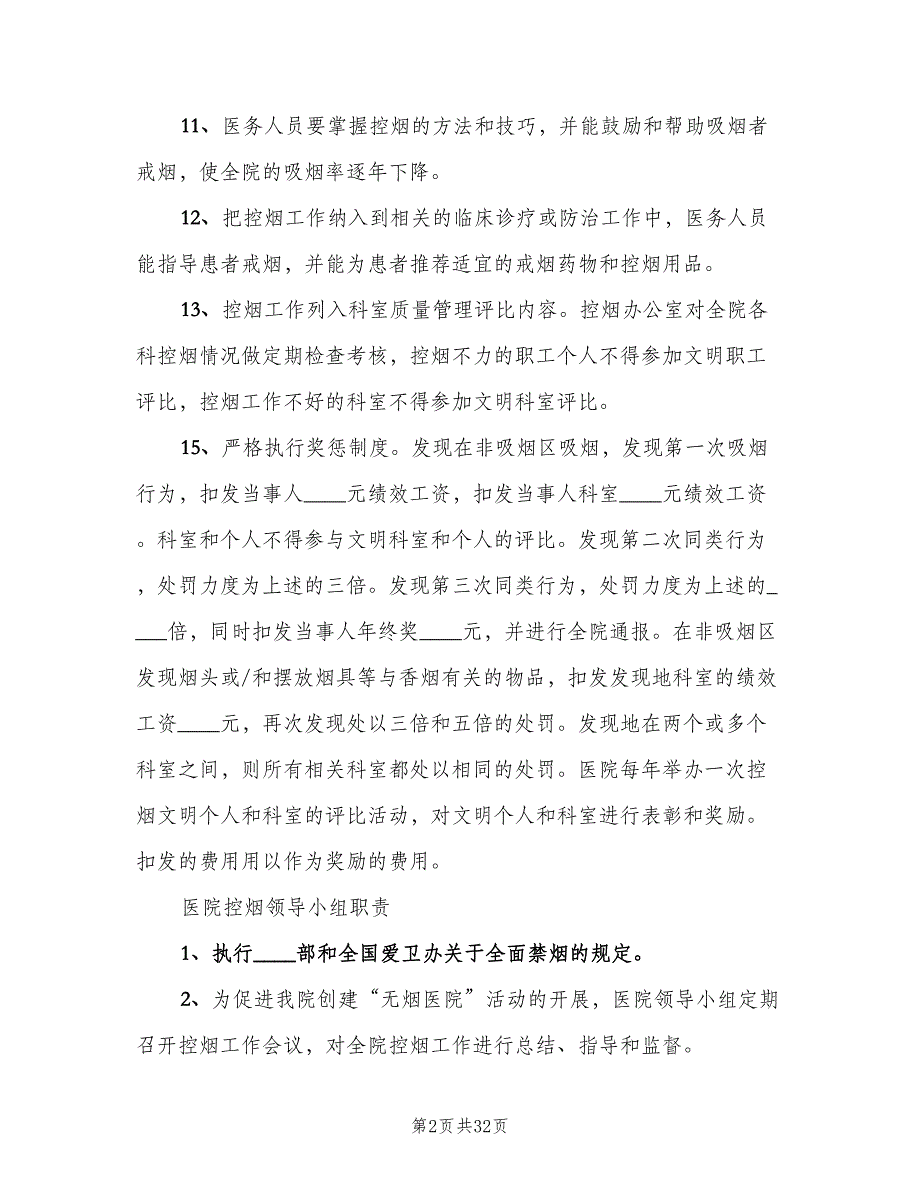 11、医务人员要掌握控烟的方法和技巧，并能鼓励和帮助吸烟者
戒烟，使全院的吸烟率逐年下降。
12、把控烟工作纳入到相关的临床诊疗或防治工作中，医务人员
能指导患者戒烟，并能为患者推荐适宜的戒烟药物和控烟用品。
13、控烟工作列入科室质量管理评比内容。控烟办公室对全院各
科控烟情况做定期检查考核，控烟不力的职工个人不得参加文明职工
评比，控烟工作不好的科室不得参加文明科室评比。
15、严格执行奖惩制度。发现在非吸烟区吸烟，发现第一次吸烟
行为，扣发当事人____元绩效工资，扣发当事人科室____元绩效工资
。科室和个人不得参与文明科室和个人的评比。发现第二次同类行为
，处罚力度为上述的三倍。发现第三次同类行为，处罚力度为上述的_
___倍，同时扣发当事人年终奖____元，并进行全院通报。在非吸烟区
发现烟头或/和摆放烟具等与香烟有关的物品，扣发发现地科室的绩效
工资____元，再次发现处以三倍和五倍的处罚。发现地在两个或多个
科室之间，则所有相关科室都处以相同的处罚。医院每年举办一次控
烟文明个人和科室的评比活动，对文明个人和科室进行表彰和奖励。
扣发的费用用以作为奖励的费用。
医院控烟领导小组职责
1、执行____部和全国爱卫办关于全面禁烟的规定。
2、为促进我院创建“无烟医院”活动的开展，医院领导小组定期
召开控烟工作会议，对全院控烟工作进行总结、指导和监督。
第2页共32页